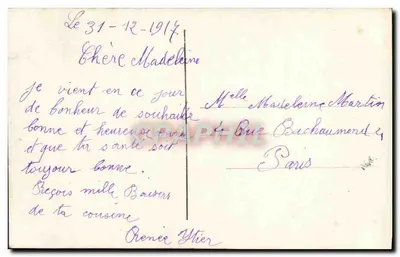 Le 31-12-1917
Chère Madeleine
Je vient en ce jour
de bonheur de souhaiter
bonne et heureuse
et que ta santé soit
toujour bonne.
Reçois mille Baisers
de ta cousine
Renée
Melle Madeleine Martin
Rue Bachaumont
Paris